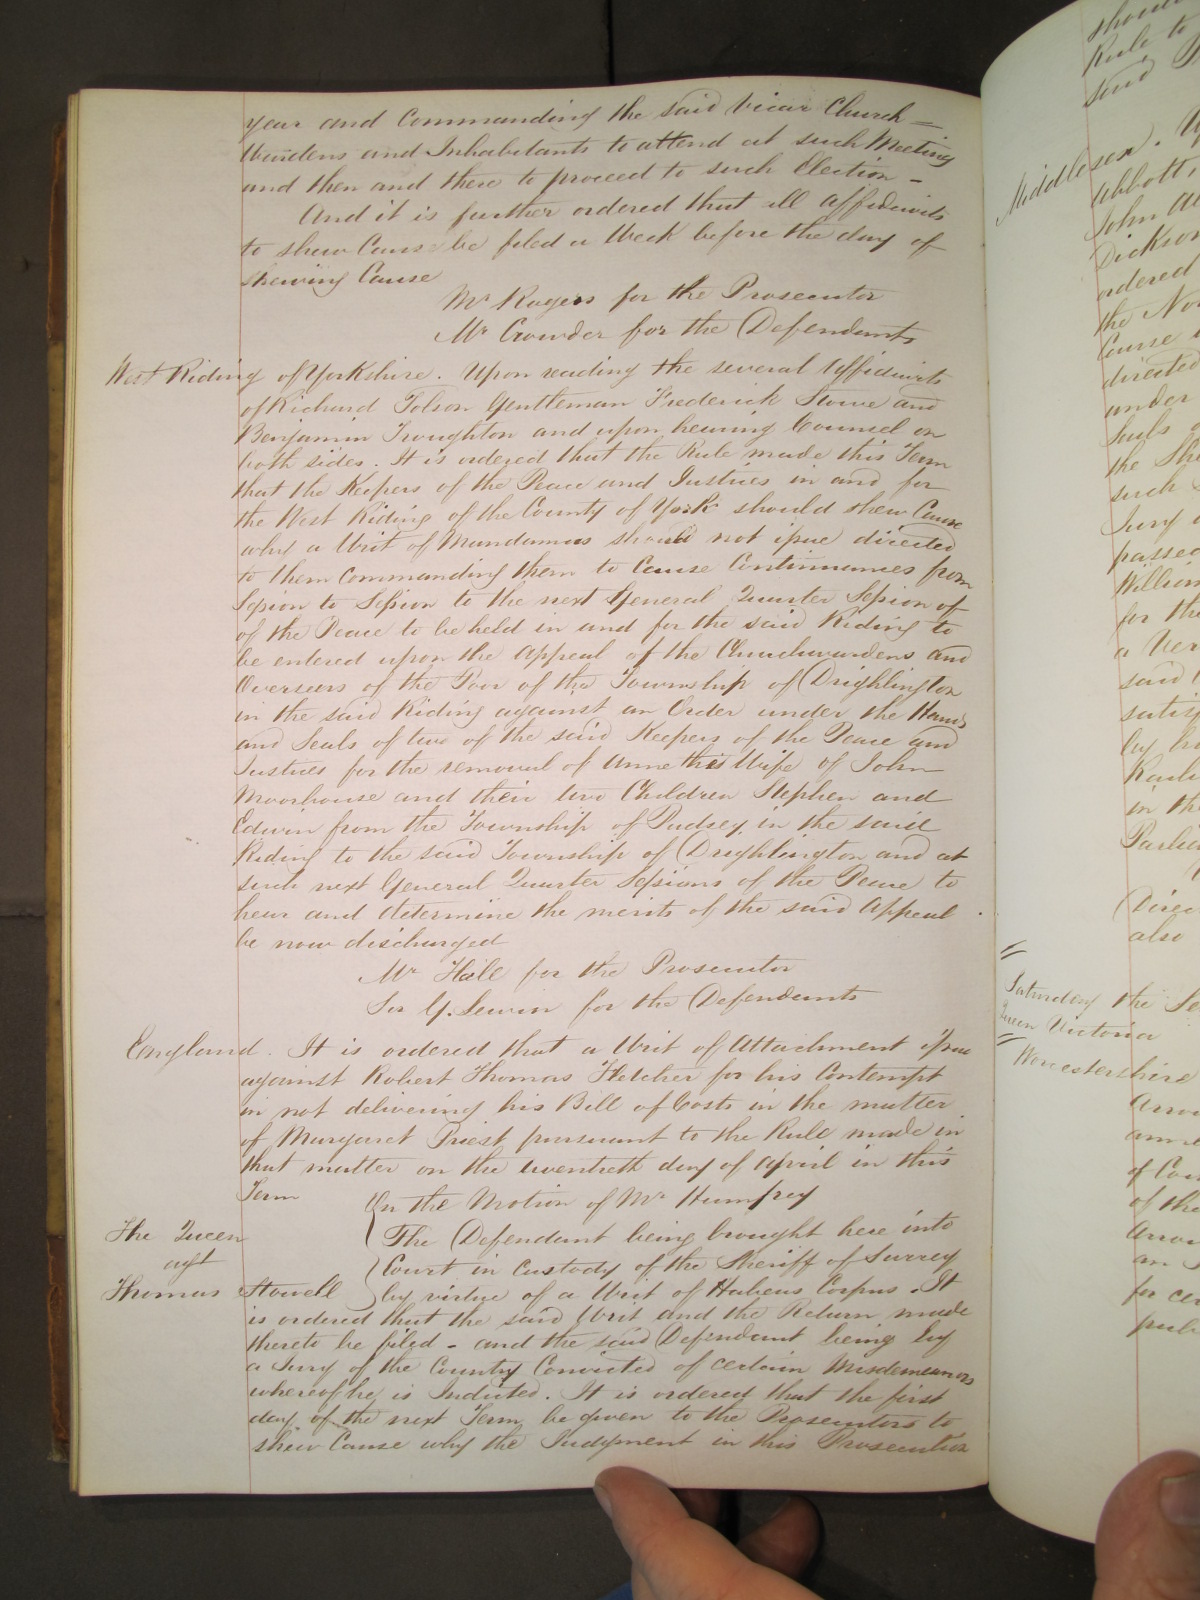 year and Commanding the said Vicar Church=
Wardens and Inhabitants to attend at such Meeting
and then and there to proceed to such Election -
And it is further ordered that all affidavits
to shew Cause be filed a Week before the day of
shewing Cause
Mr Rogers for the Prosecutor
Mr Crowder for the Defendants
West Riding of Yorkshire. Upon reading the several Affidavits
of Richard Tolson Gentleman Frederick Stowe and
Benjamin Troughton and upon hearing Counsel on
both sides. It is ordered that the Rule made this Term
that the Keepers of the Peace and Justices in and for
the West Riding of the County of York should shew Cause
why a Writ of Mandamus should not issue directed
to them Commanding them to Cause Continuances from
Session to Session to the next General Quarter Session of
of the Peace to be held in and for the said Riding to
be entered upon the Appeal of the Churchwardens and
Overseers of the Poor of the Township of Drighlington
in the said Riding against an Order under the Hands
and Seals of two of the said Keepers of the Peace and
Justices for the removal of Anne the Wife of John
Moorhouse and their two Children Stephen and
Edwin from the Township of Pudsey in the said
Riding to the said Township of Drighlington and at
such next General Quarter Sessions of the Peace to
hear and determine the merits of the said Appeal
be now discharged
Mr Hall for the Prosecutor
Sir G. Lewin for the Defendants
England. It is ordered that a Writ of Attachment issue
against Robert Thomas Fletcher for his Contempt
in not delivering his Bill of Costs in the matter
of Margaret Priest pursuant to the Rule made in
that matter on the twentieth day of April in this
Term
On the Motion of Mr Humfrey
The Queen
agt
Thomas Stowell
The Defendant being brought here into
Court in Custody of the Sheriff of Surrey
by virtue of a Writ of Habeas Corpus. It
is ordered that the said Writ and the Return made
thereto be filed - and the said Defendant being by
a Jury of the Country Convicted of certain Misdemeanors
whereof he is Indicted. It is ordered that the first
day of the next Term be given to the Prosecutors to
shew Cause why the Judgment in this Prosecution
should
Rule to
said
Middlesex.
Abbott,
John
Dickson
ordered
the
Cause
directed
under
Seals
the
such
Jury
passed
William
for the
a
said
by
in the
also
Saturday the
Queen Victoria
Worcestershire
of
of the
an
for